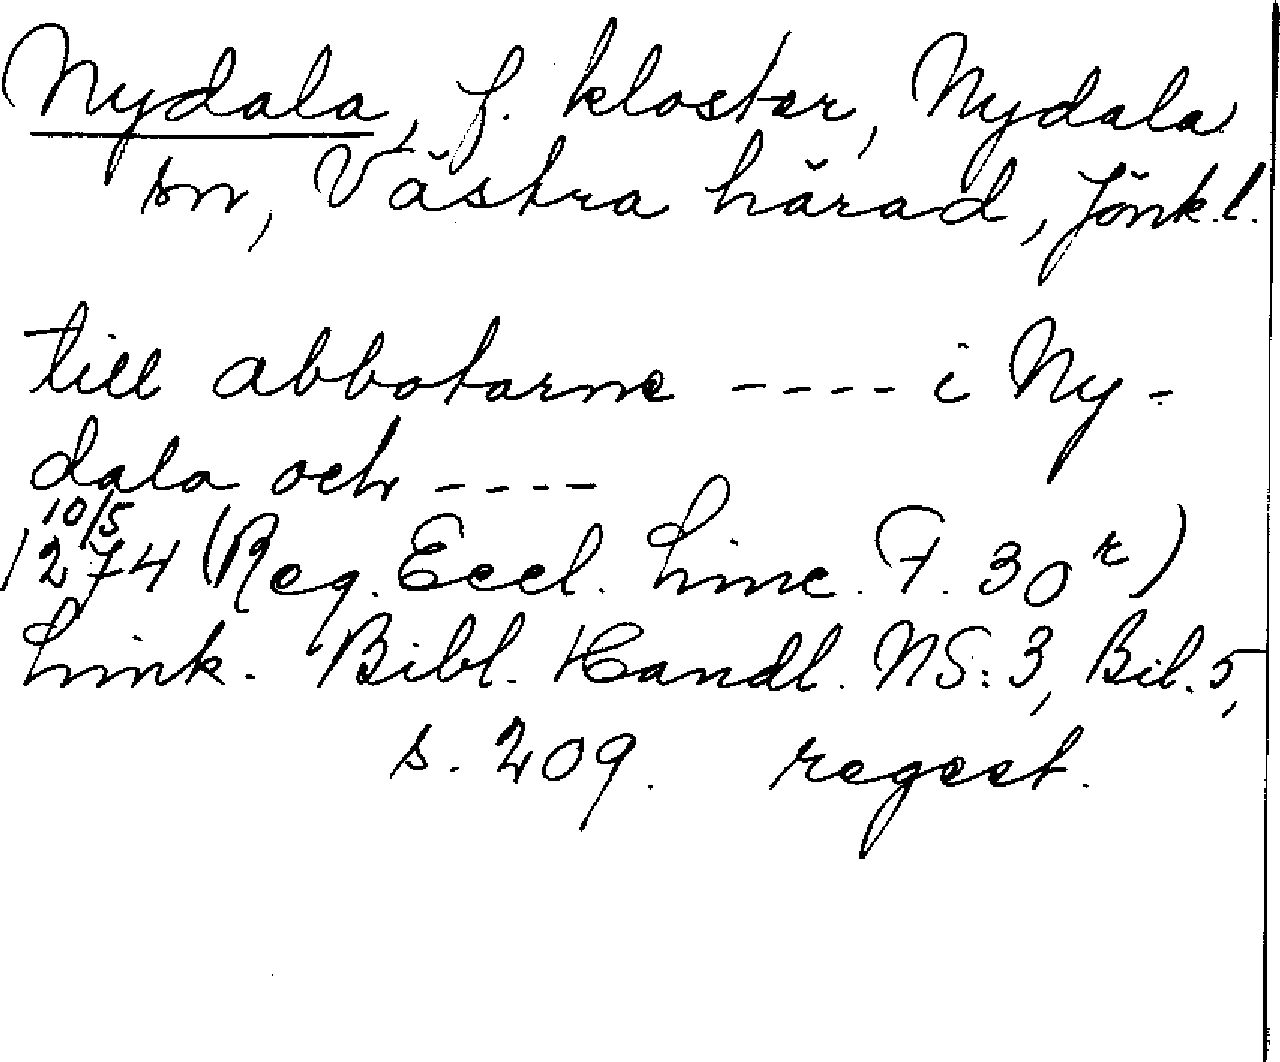 Nydala, f. kloster, Nydala
sn, Västra härad, Jönk.l.
till abbotarne ---- i Ny-
dala och ----
10/5
1274 (Reg. Eccl. Linc. F. 30r)
Link. Bibl. Handl. NS:3, Bil. 5,
s. 209. regest.